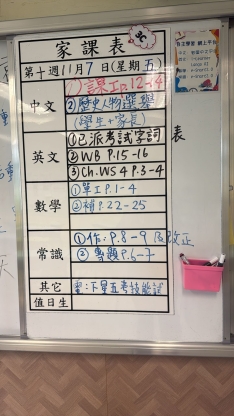 家課表
第十週11月7日(星期五)
中文
①課工p.12-14
②歷史人物選舉
(學生+家長)
英文
①已派考試字詞
②WB P.15-16
③Ch.WS4 P.3-4
數學
①單工P.1-4
②補P.22-25
常識
①作:P.8-9 改正
②專題P.6-7
其它
值日生
表